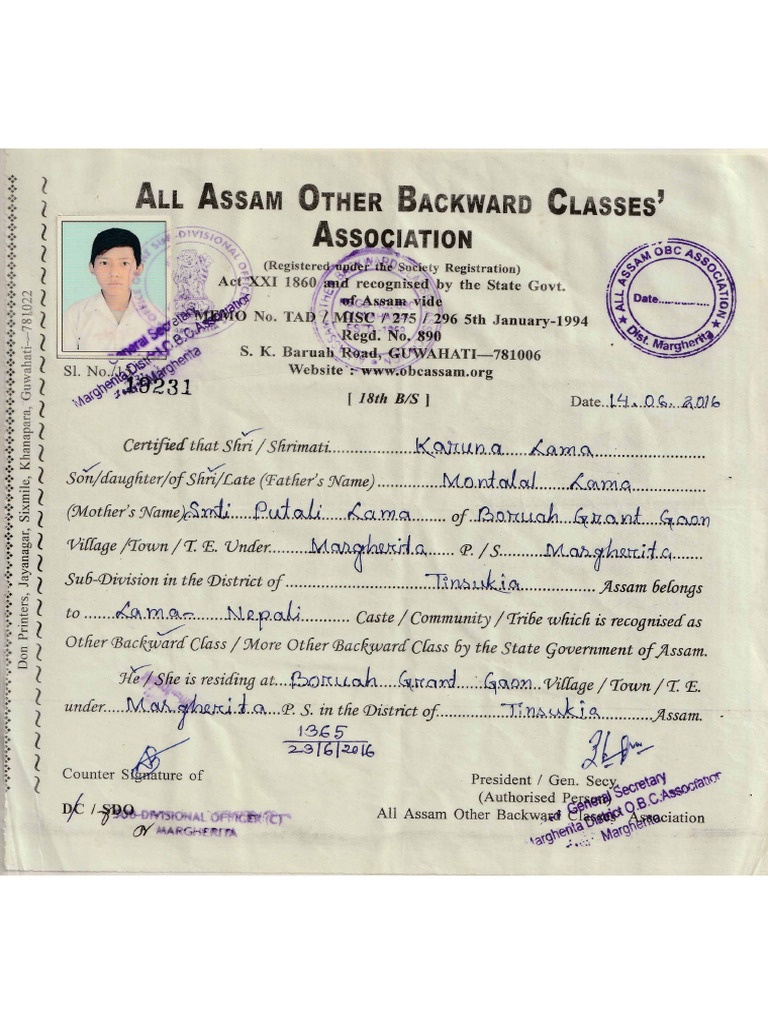 ALL ASSAM OTHER BACKWARD CLASSES'
ASSOCIATION
(Registered under the Society Registration)
Act XXI 1860 and recognised by the State Govt.
of Assam vide
MEMO No. TAD / MISC / 275 / 296 5th January-1994
Regd. No. 890
S. K. Baruah Road, GUWAHATI—781006
Website : www.obcassam.org
ALL ASSAM OBC ASSOCIATION
Date..............
Dist. Margherita
General Secretary
Margherita District O.B.C. Association
Margherita
Sl. No.
19231
[ 18th B/S ]
Date..14.06.2016
Certified that Shri / Shrimati..................Karuna Lama..................
Son/daughter/of Shri/Late (Father's Name)............Montalal Lama............
(Mother's Name).Smti Putali Lama of Boruah Grant Gaon
Village /Town / T. E. Under.......Margherita...... P. / S.......Margherita......
Sub-Division in the District of..................Tinsukia..................Assam belongs
to.....Lama- Nepali.......... Caste / Community / Tribe which is recognised as
Other Backward Class / More Other Backward Class by the State Government of Assam.
He / She is residing at...Boruah Grant Gaon..Village / Town / T. E.
under....Margherita... P. S. in the District of.........Tinsukia.........Assam.
1365
23/6/2016
Counter Signature of
DC / SDO
SUB-DIVISIONAL OFFICER (C)
MARGHERITA
President / Gen. Secy.
(Authorised Person)
All Assam Other Backward Classes Association
General Secretary
Margherita District O.B.C. Association
Margherita
Don Printers, Jayanagar, Sixmile, Khanapara, Guwahati—781022